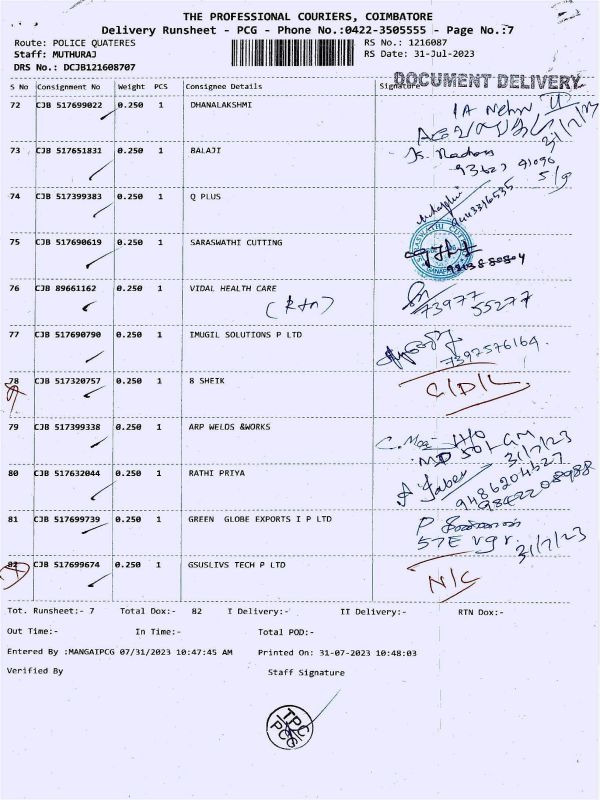 THE PROFESSIONAL COURIERS, COIMBATORE
Delivery Runsheet - PCG - Phone No.:0422-3505555 - Page No.:7
Route: POLICE QUATERES
RS No.: 1216087
Staff: MUTHURAJ
RS Date: 31-Jul-2023
DRS No.: DCJB121608707
DOCUMENT DELIVERY
S No Consignment No Weight PCS Consignee Details Signature
72 CJB 517699022 0.250 1 DHANALAKSHMI
31/7/23
73 CJB 517651831 0.250 1 BALAJI
74 CJB 517399383 0.250 1 Q PLUS
9443316535
75 CJB 517690619 0.250 1 SARASWATHI CUTTING
76 CJB 89661162 0.250 1 VIDAL HEALTH CARE
(Rtn)
73977
55277
77 CJB 517690790 0.250 1 IMUGIL SOLUTIONS P LTD
7397576164.
78 CJB 517320757 0.250 1 8 SHEIK
C/D/L
79 CJB 517399338 0.250 1 ARP WELDS &WORKS
31/7/23
80 CJB 517632044 0.250 1 RATHI PRIYA
9486204627
9842208988
81 CJB 517699739 0.250 1 GREEN GLOBE EXPORTS I P LTD
57E vgr. 31/7/23
82 CJB 517699674 0.250 1 GSUSLIVS TECH P LTD
N/C
Tot. Runsheet:- 7 Total Dox:- 82 I Delivery:- II Delivery:- RTN Dox:-
Out Time:- In Time:- Total POD:-
Entered By :MANGAIPCG 07/31/2023 10:47:45 AM Printed On: 31-07-2023 10:48:03
Verified By Staff Signature
TPC